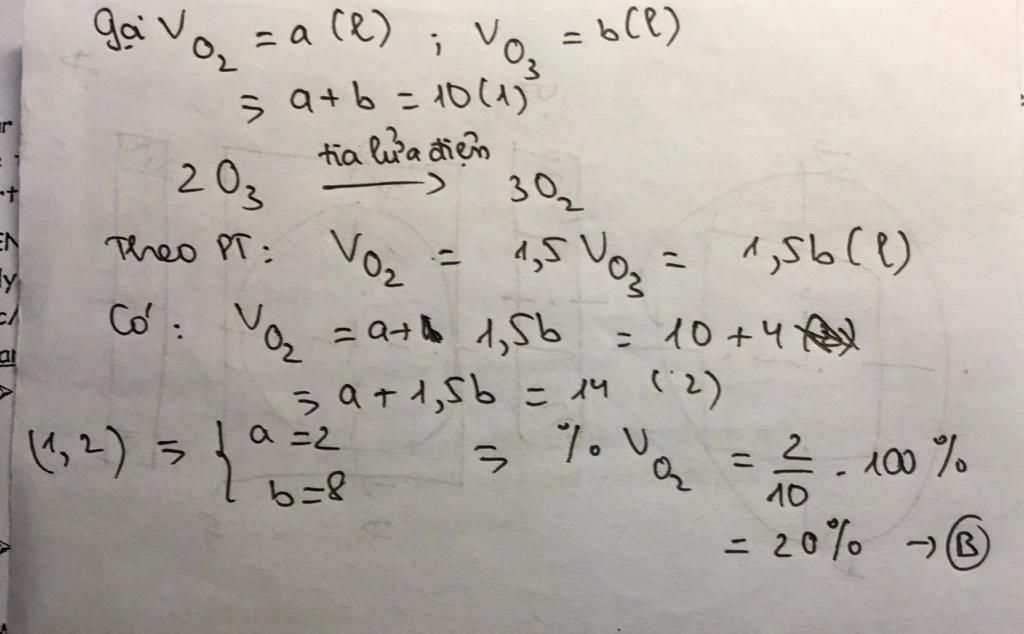 Gọi V O₂ = a (l) ; V O₃ = b(l)
⇒ a + b = 10 (1)
2O₃ tia lửa điện → 3O₂
Theo PT: V O₂ = 1,5 V O₃ = 1,5b (l)
Có: V O₂ = a + 1,5b = 10 + 4
⇒ a + 1,5b = 14 (2)
(1,2) ⇒ { a = 2 b = 8 ⇒ % V O₂ = 2/10 . 100%
= 20% → B